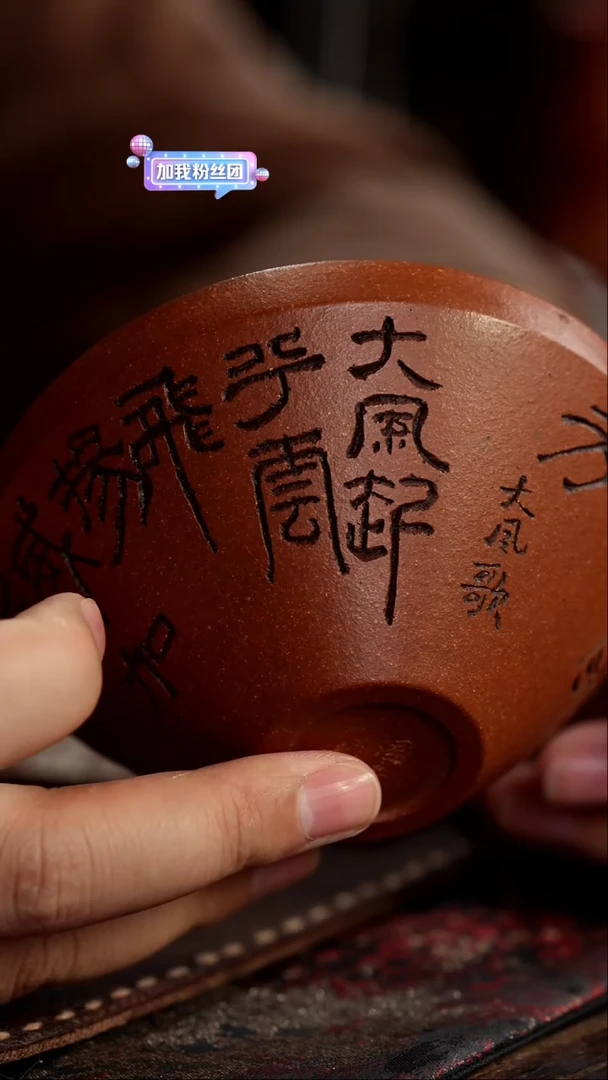 加我粉丝团
大風歌
大風起
兮雲
飛
揚
威
加